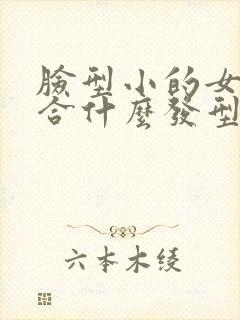 臉型小的女
合什麼發型
六本木綾